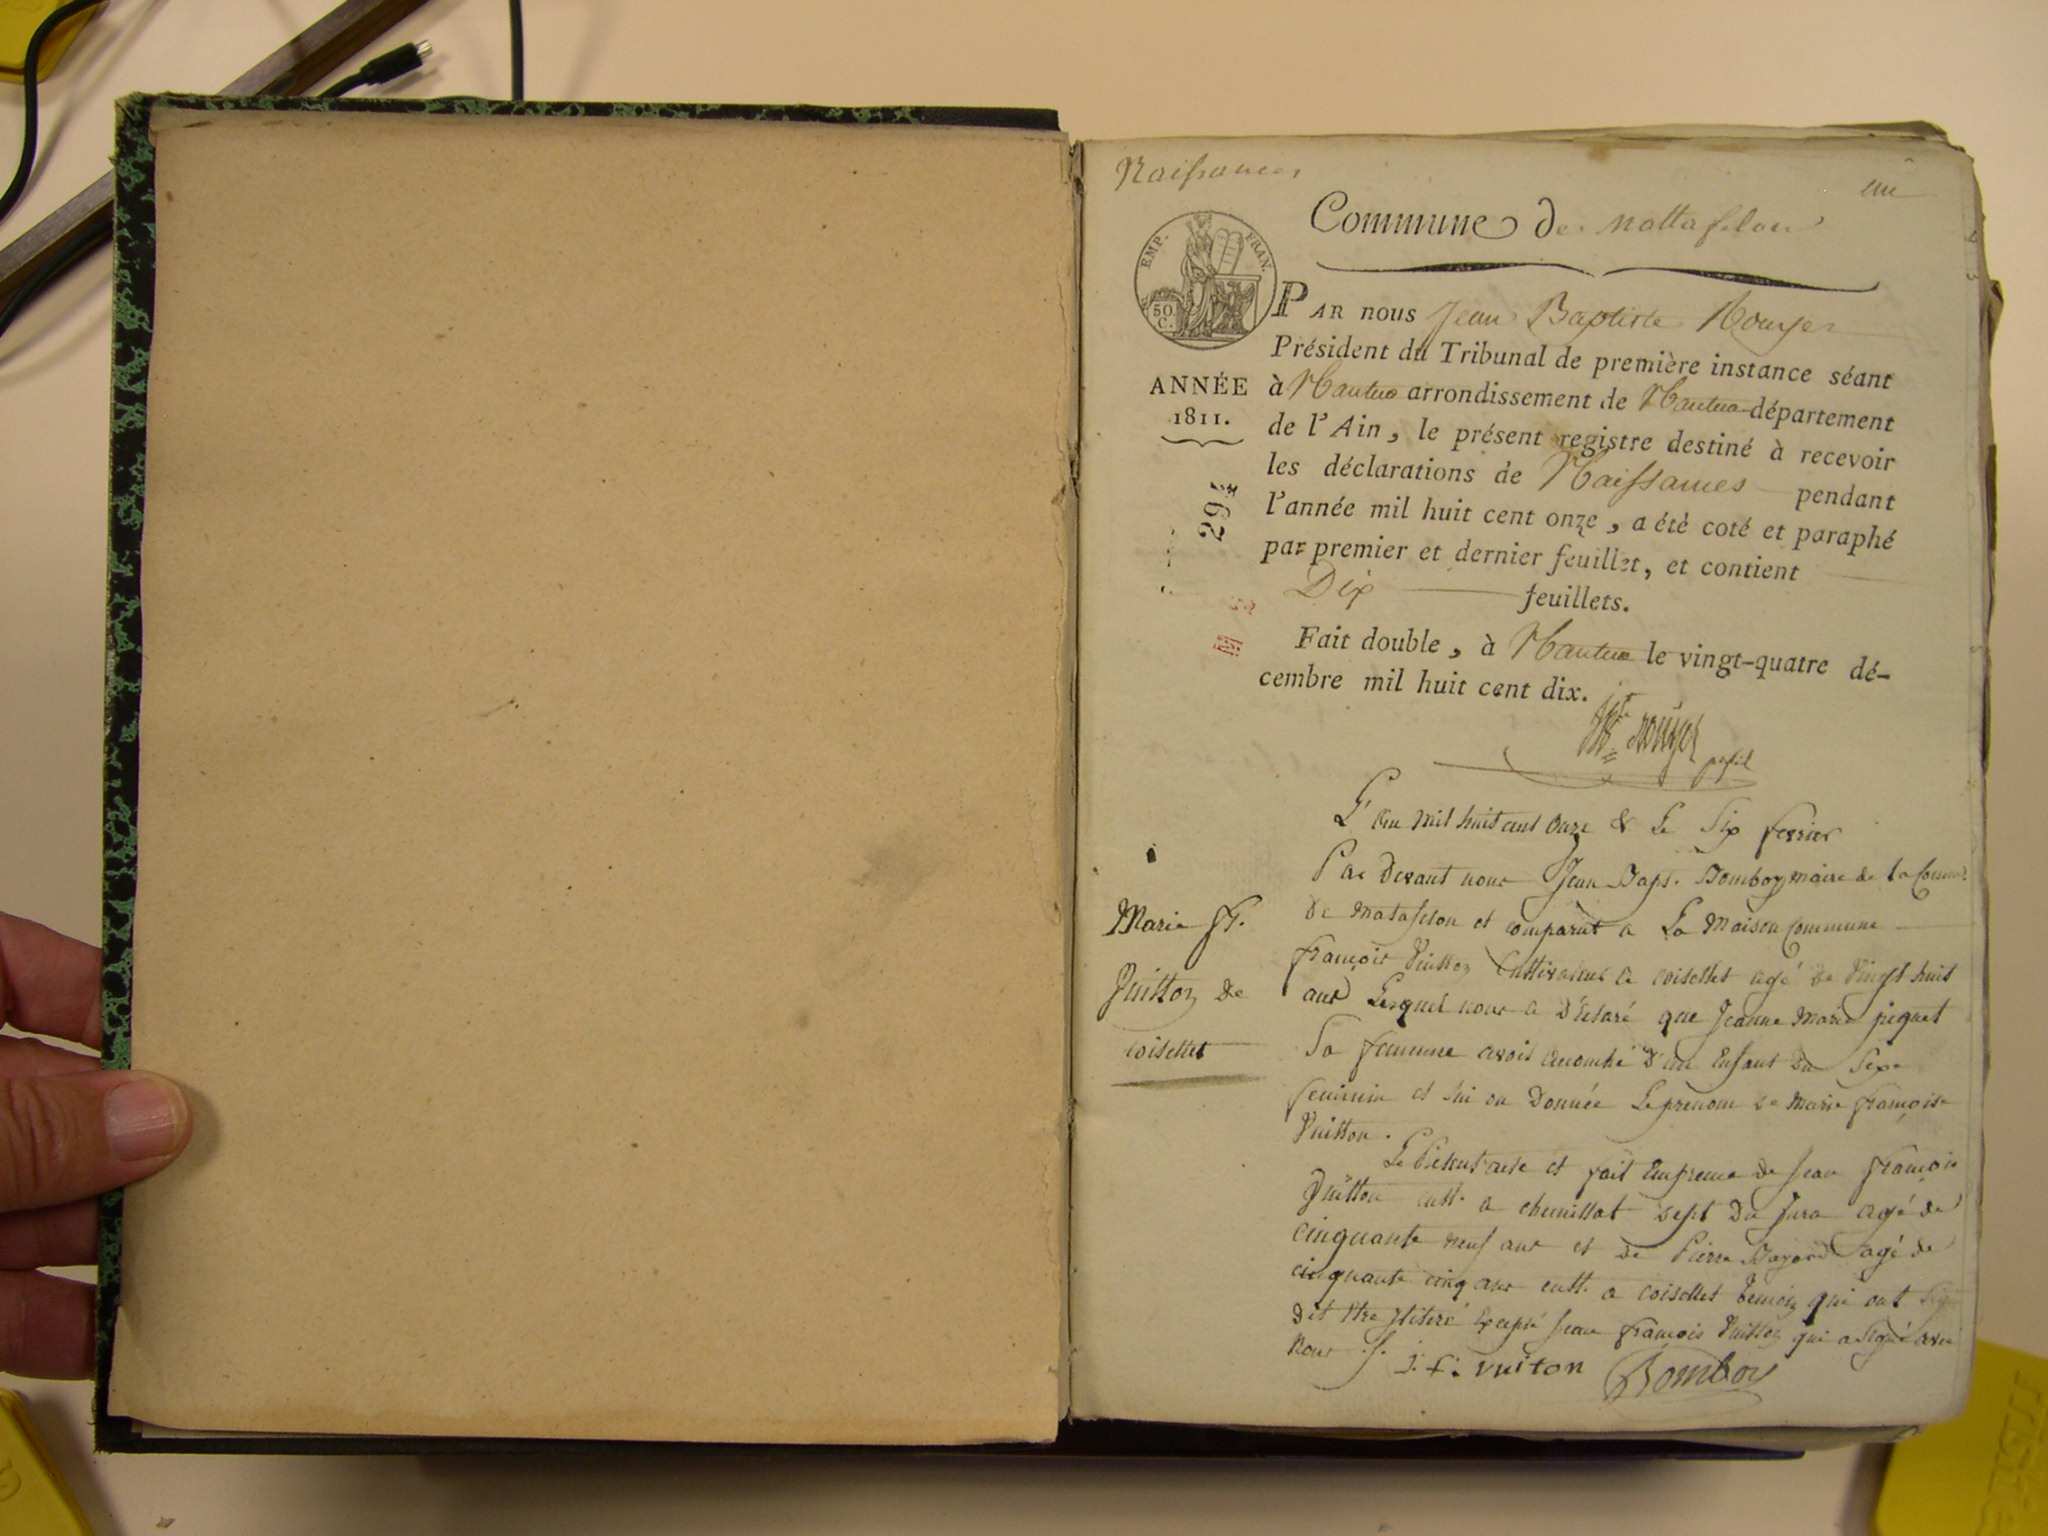 Naissances
un
Commune de Mattafelon
EMP. FRAN.
50 C.
PAR nous Jean Baptiste Rouyer
Président du Tribunal de première instance séant
ANNÉE
1811.
à Nantua arrondissement de Nantua département
de l'Ain, le présent registre destiné à recevoir
les déclarations de Naissances pendant
l'année mil huit cent onze, a été coté et paraphé
par premier et dernier feuillet, et contient
Dix feuillets.
294
Fait double, à Nantua le vingt-quatre dé-
cembre mil huit cent dix.
rouyer
L'an mil huit cent onze & Le Six fevrier
Par devant nous Jean Bapt. Bomboy maire de la Comm
de matafelon et comparut a La maison Commune
Marie fr.
Vuitton de
Coisellet
françois Vuitton Cultivateur a coisellet agé de Vingt huit
ans Lesquel nous a Déclaré que Jeanne Marie piquet
Sa femme avois accouché d'un Enfant du Sexe
feminin et lui on Donnée Le prenom de marie françoise
Vuitton.
Le Présent acte et fait En presence de Jean françois
Vuitton cult. a chemillat dept du Jura agé de
cinquante neuf ans et de Pierre Bayard agé de
cinquante cinq ans cult. a coisellet temoin qui ont
dit être illiteré Excepté Jean françois Vuitton qui a Signé avec
Nous
j. f. vuiton Bomboy